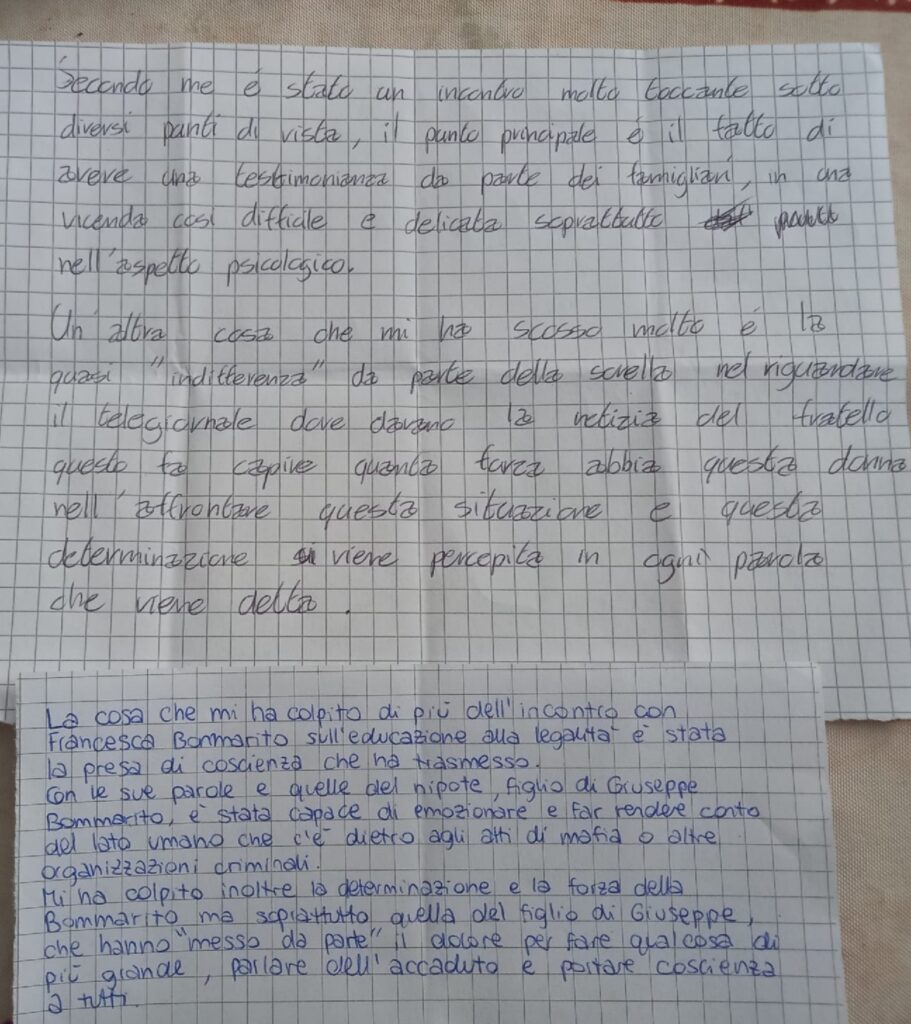 Secondo me é stato un incontro molto toccante sotto
diversi punti di vista, il punto principale é il fatto di
avere una testimonianza da parte dei famigliari, in una
vicenda così difficile e delicata soprattutto
nell'aspetto psicologico.
Un'altra cosa che mi ha scosso molto é la
quasi "indifferenza" da parte della sorella nel riguardare
il telegiornale dove davano la notizia del fratello
questo fa capire quanta forza abbia questa donna
nell'affrontare questa situazione e questa
determinazione viene percepita in ogni parola
che viene detta.
La cosa che mi ha colpito di più dell'incontro con
Francesca Bommarito sull'educazione alla legalità è stata
la presa di coscienza che ha trasmesso.
Con le sue parole e quelle del nipote, figlio di Giuseppe
Bommarito, è stata capace di emozionare e far rendere conto
del lato umano che c'è dietro agli atti di mafia o altre
organizzazioni criminali.
Mi ha colpito inoltre la determinazione e la forza della
Bommarito ma soprattutto quella del figlio di Giuseppe,
che hanno "messo da parte" il dolore per fare qualcosa di
più grande, parlare dell'accaduto e portare coscienza
a tutti.